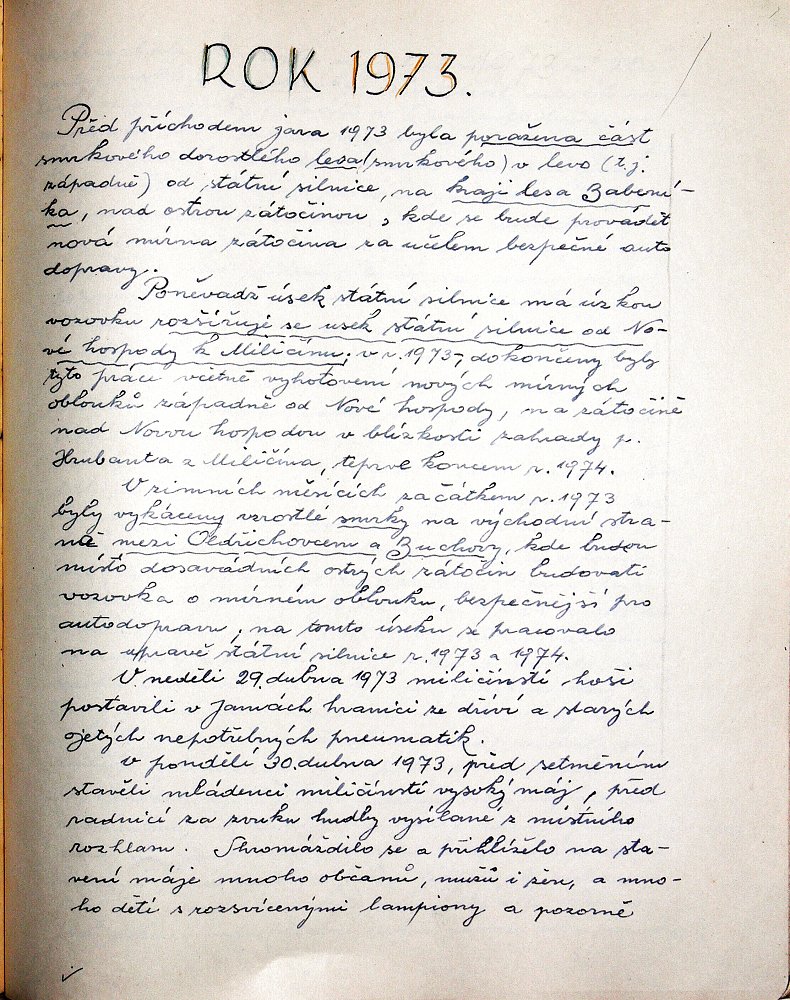 ROK 1973.
Před příchodem jara 1973 byla poražena část
smrkového dorostlého lesa (smrkového) v levo (t.j.
západně) od státní silnice, na kraji lesa Zabení-
ka, nad ostrou zátočinou, kde se bude provádět
nová mírna zátočina za účelem bezpečné auto
dopravy.
Poněvadž úsek státní silnice má úzkou
vozovku rozšiřuje se usek státní silnice od No-
vé hospody k Miličínu, v r. 1973, dokončeny byly
tyto práce včetně vyhotovení nových mírných
oblouků západně od Nové hospody, na zátočině
nad Novou hospodou v blízkosti zahrady p.
Hrubanta z Miličína, teprve koncem r. 1974.
V zimních měsících začátkem r. 1973
byly vykáceny vzrostlé smrky na východní stra-
ně mezi Oldřichovcem a Zuchovy, kde budou
místo dosavádních ostrých zátočin budovati
vozovka o mírném oblouku, bezpečnější pro
autodopravu, na tomto úseku se pracovalo
na upravě státní silnice r. 1973 a 1974.
V neděli 29. dubna 1973 miličínstí hoši
postavili v Jamách hranici ze dříví a starých
ojetých nepotřebných pneumatik.
v pondělí 30. dubna 1973, před setměním
stavěli mládenci miličínstí vysoký máj, před
radnicí za zvuku hudby vysílané z místního
rozhlasu. Shromáždilo se a přihlíželo na sta-
vení máje mnoho občanů, mužů i žen, a mno-
ho dětí s rozsvícenými lampiony a pozorně